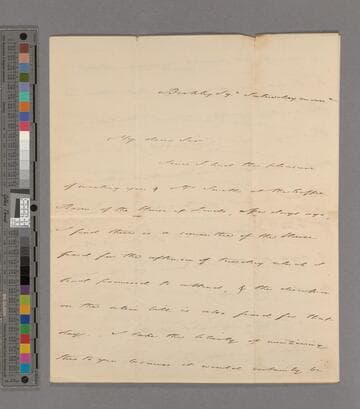 Berkeley Sqr. Saturday morn
My dear Sir
Since I had the pleasure
of meeting you & Mr. Smith at the Coffee
Room of the House of Lords, a few days ago
I find there is a committee of the House
fixed for the afternoon of Tuesday which I
had promised to attend, & the
on the bill is also fixed for that
day. I take the liberty of mentioning
this to you because it would certainly be